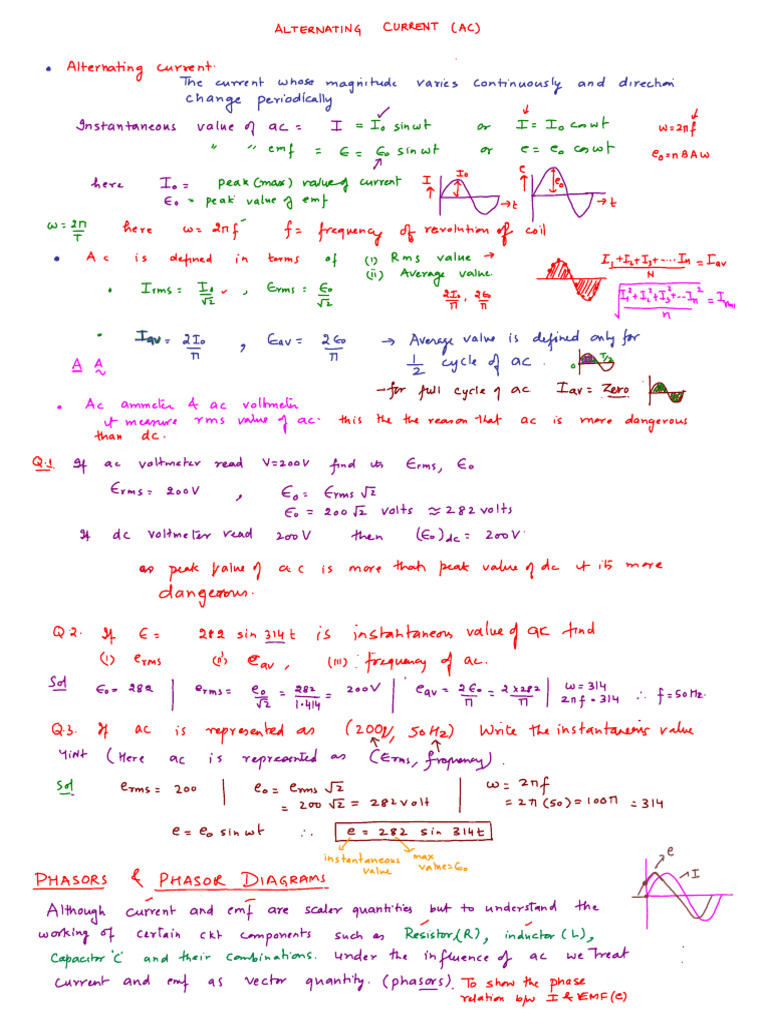 ALTERNATING CURRENT (AC)
• Alternating current.
The current whose magnitude varies continuously and direction
change periodically
Instantaneous value of ac = I = I₀ sinωt or I = I₀ cosωt ω=2πf
" " emf = ε = ε₀ sinωt or e = e₀ cosωt e₀=nBAω
here I₀ = peak (max) value of current
ε₀ = peak value of emf
I I₀ →t e e₀ →t
ω=2π/T here ω= 2πf f= frequency of revolution of coil
• Ac is defined in terms of (i) Rms value →
(ii) Average value.
I₁+I₂+I₃+····Iₙ/N = Iav
• Irms = I₀/√2, εrms = ε₀/√2 2I₀/π, 2ε₀/π
√(I₁²+I₂²+I₃²+--Iₙ²/n) = Irms
• Iav = 2I₀/π , εav = 2ε₀/π → Average value is defined only for
1/2 cycle of ac. 0 T/2
A A̰
→for full cycle of ac Iav = Zero
• Ac ammeter & ac voltmeter
it measure rms value of ac. this the the reason that ac is more dangerous
than dc.
Q.1 If ac voltmeter read V=200V find its εrms, ε₀
εrms = 200V , ε₀ = εrms √2
ε₀ = 200√2 volts ≈ 282 volts
If dc voltmeter read 200V then (ε₀)dc = 200V
as peak value of ac is more than peak value of dc it is more
dangerous.
Q2. If ε = 282 sin 314t is instantaneous value of ac find
(i) erms (ii) eav, (iii) frequency of ac.
Sol ε₀= 282 | erms = e₀/√2 = 282/1.414 = 200V | eav = 2ε₀/π = 2×282/π | ω=314 2πf=314 ∴ f=50Hz.
Q.3. If ac is represented as (200V, 50Hz) Write the instantaneous value
Hint (Here ac is represented as (Erms, frequency).
Sol erms = 200 | e₀= erms √2 | ω= 2πf
= 200√2 = 282volt = 2π(50)=100π =314
e = e₀ sinωt ∴ e = 282 sin 314t
instantaneous value max value=ε₀
e I
PHASORS & PHASOR DIAGRAMS
Although current and emf are scaler quantities but to understand the
working of certain ckt components such as Resistor(R), inductor (L),
Capacitor 'C' and their Combinations. Under the influence of ac we Treat
current and emf as vector quantity. (phasors). To show the phase
relation b/w I & EMF(e)